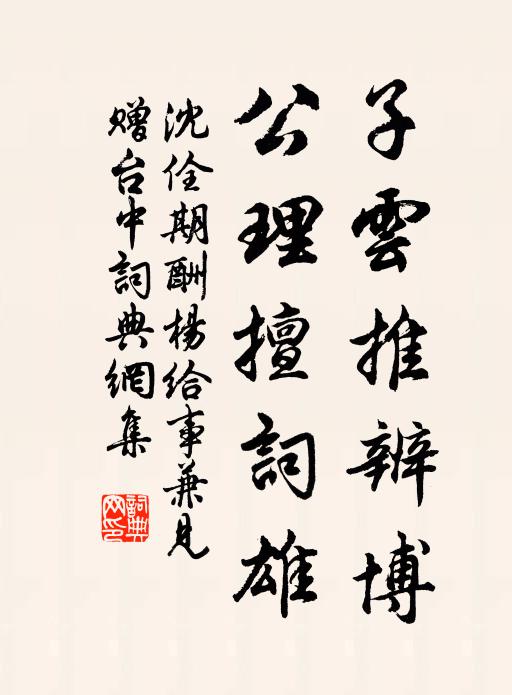 子雲推辨博
公理擅詞雄
沈佺期酬楊給事兼見
贈台中詞典網集
詞典
网印